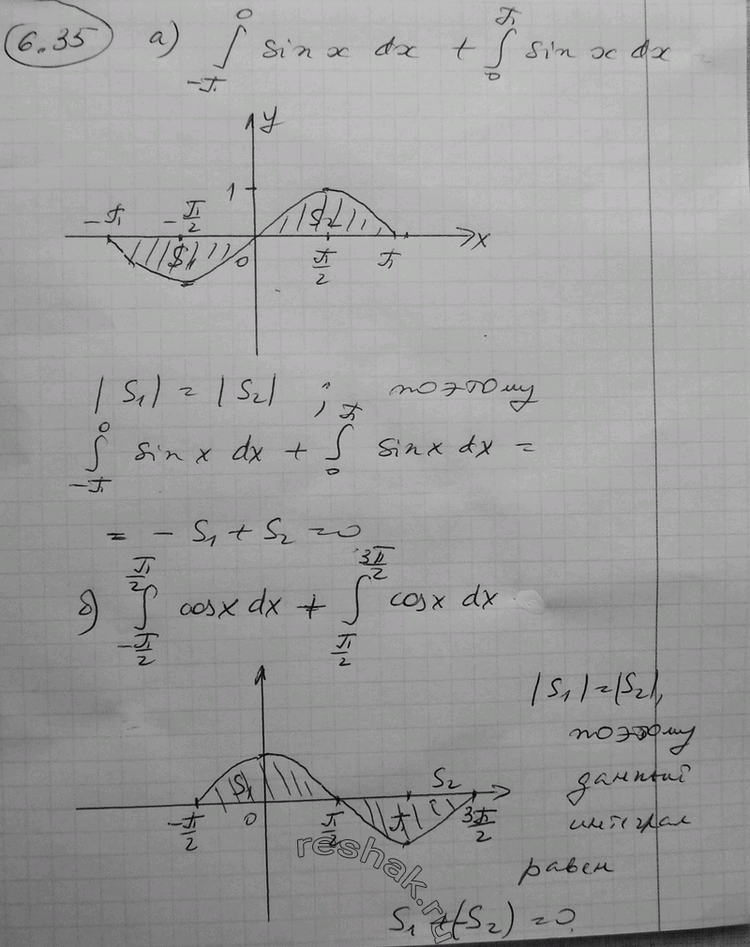 6.35 а) ∫_{-π}^{0} sin x dx + ∫_{0}^{π} sin x dx
y
1
-π -π/2 S₁ 0 S₂ π/2 π x
|S₁| = |S₂| ; поэтому
∫_{-π}^{0} sin x dx + ∫_{0}^{π} sin x dx =
= - S₁ + S₂ = 0
б) ∫_{-π/2}^{π/2} cos x dx + ∫_{π/2}^{3π/2} cos x dx
|S₁| = |S₂|,
поэтому
данный
интеграл
равен
S₁ + (-S₂) = 0.
S₁ S₂
-π/2 0 π/2 π 3π/2
reshak.ru